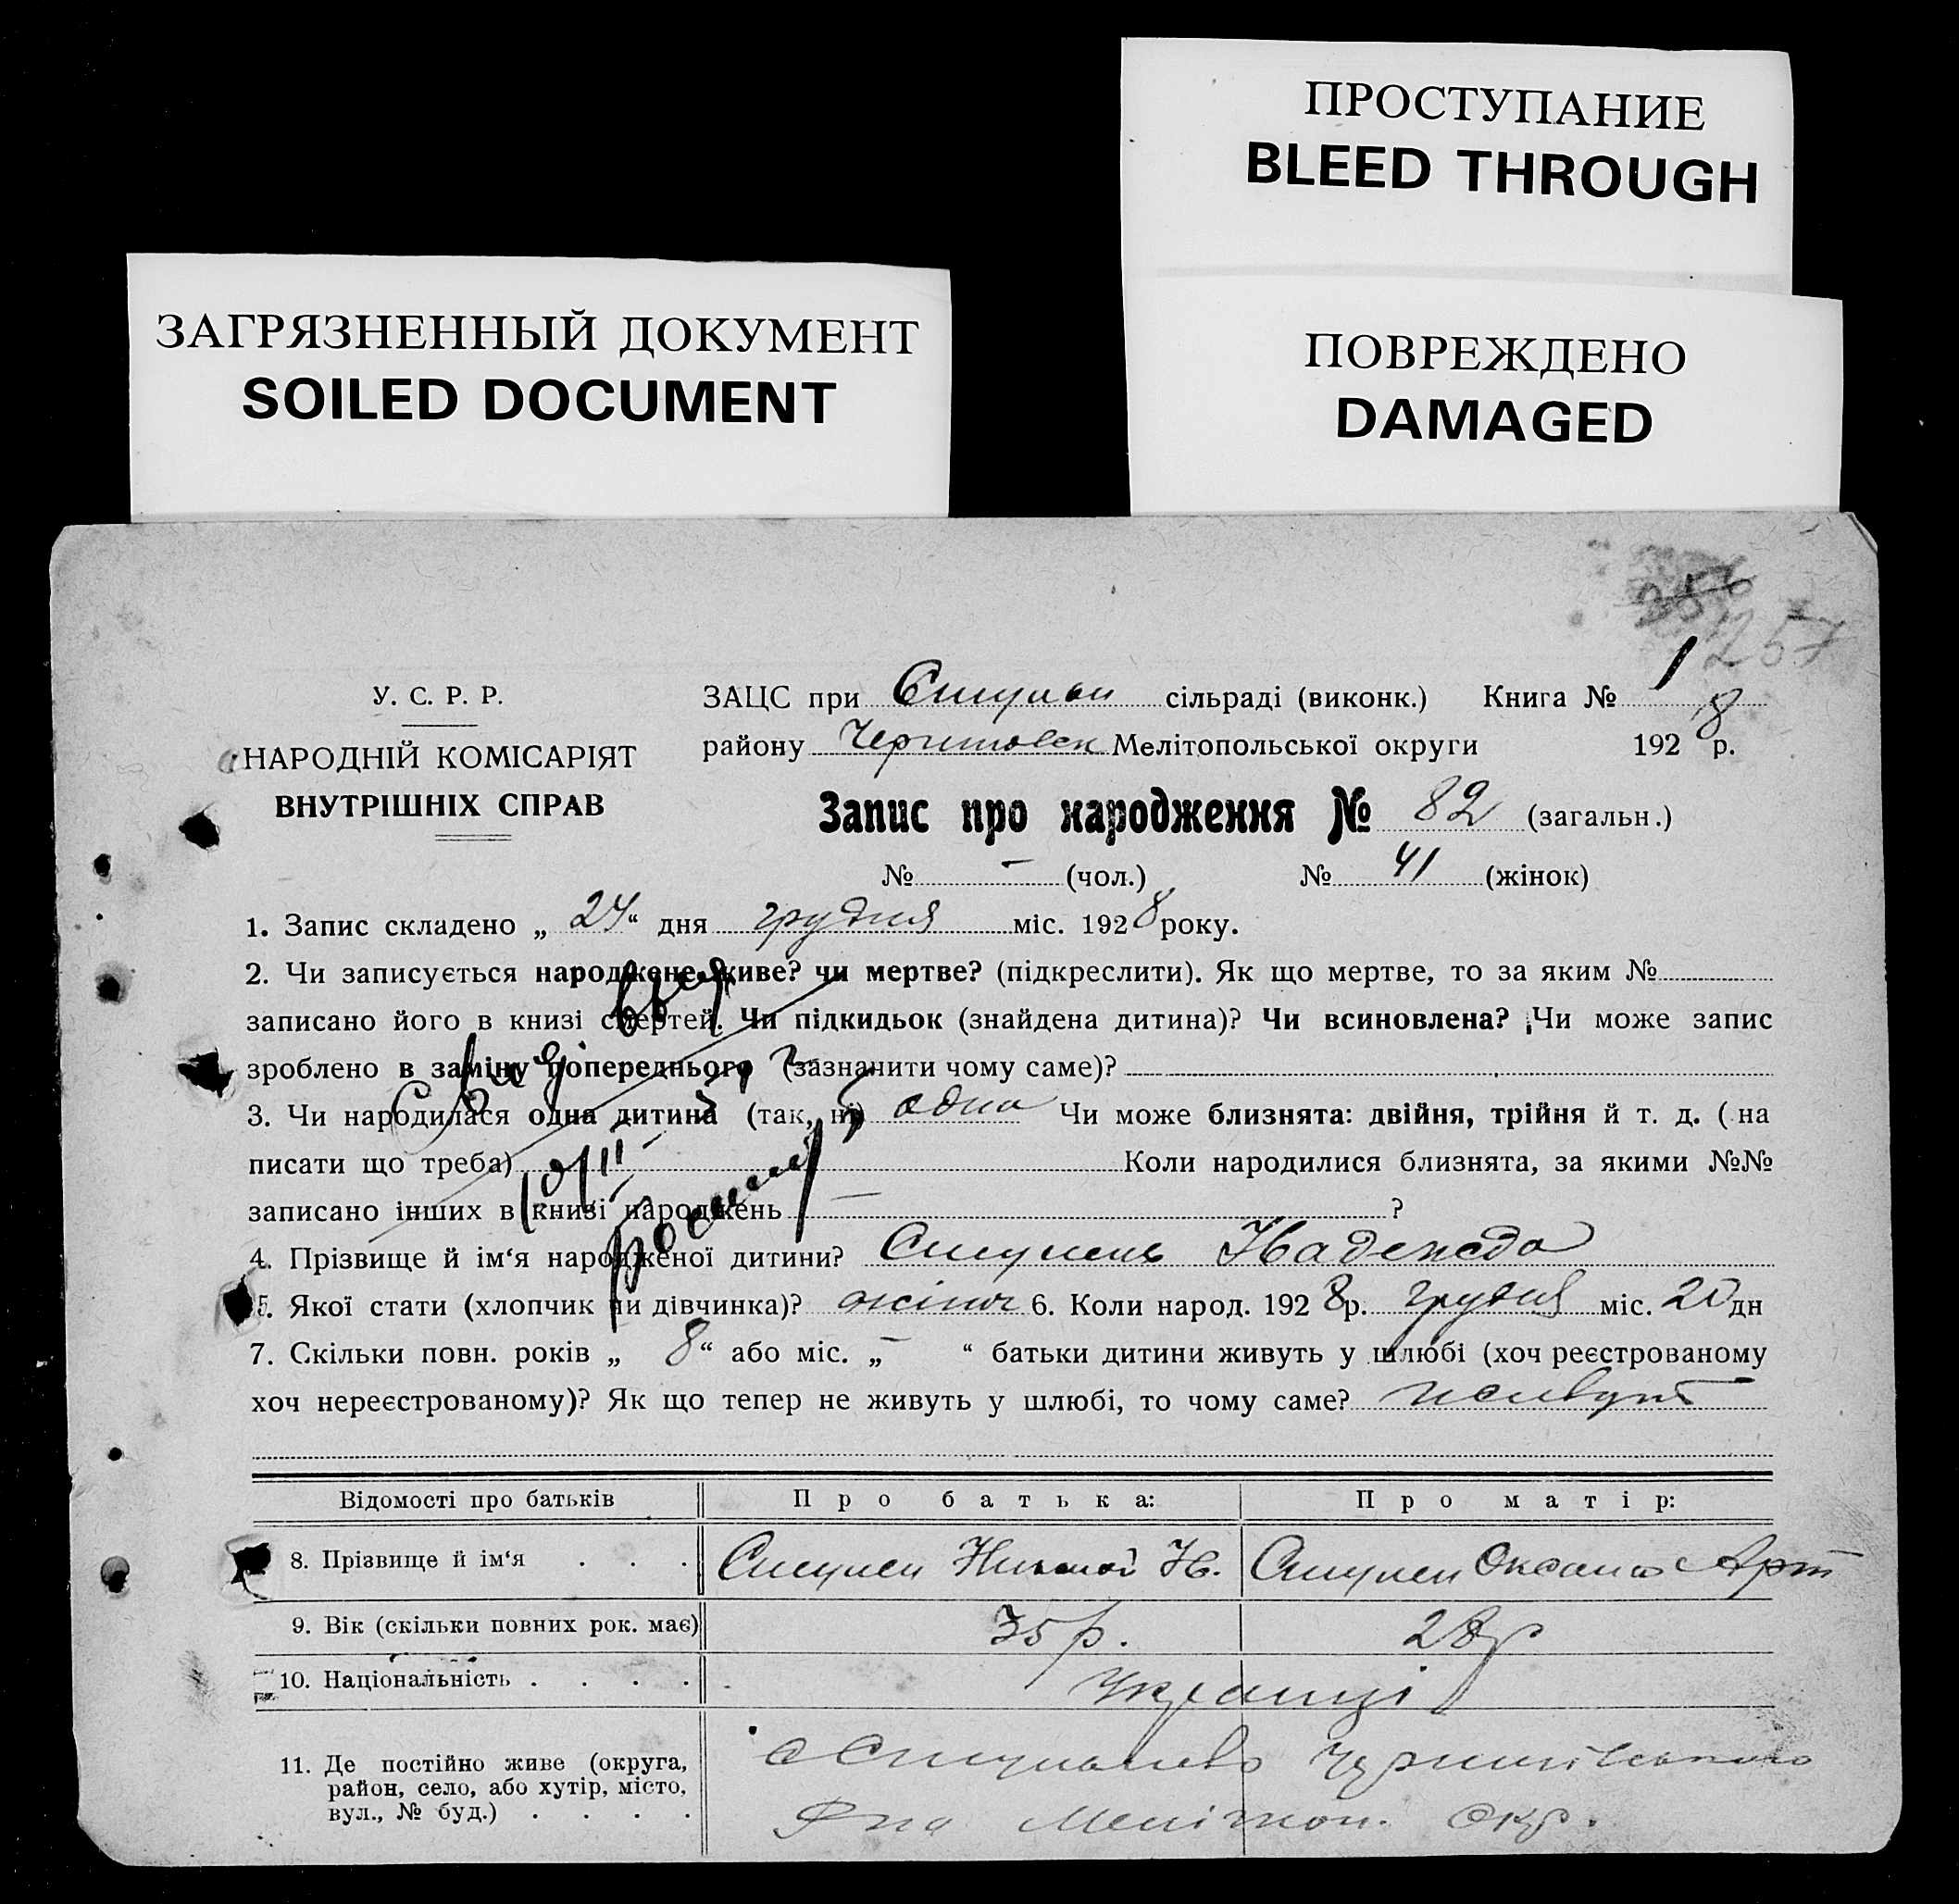 ПРОСТУПАНИЕ
BLEED THROUGH
ЗАГРЯЗНЕННЫЙ ДОКУМЕНТ
SOILED DOCUMENT
ПОВРЕЖДЕНО
DAMAGED
256
257
У. С. Р. Р.
НАРОДНІЙ КОМІСАРІЯТ
ВНУТРІШНІХ СПРАВ
ЗАЦС при сільраді (виконк.) Книга № 1
району Мелітопольської округи 1928 р.
Запис про народження № 82 (загальн.)
№ – (чол.) № 41 (жінок)
1. Запис складено „ 24 “ дня грудня міс. 1928 року.
2. Чи записується народжене живе? чи мертве? (підкреслити). Як що мертве, то за яким №
записано його в книзі смертей. Чи підкидьок (знайдена дитина)? Чи всиновлена? Чи може запис
зроблено в заміну попереднього (зазначити чому саме)?
3. Чи народилася одна дитина (так, ні) одна Чи може близнята: двійня, трійня й т. д. ( на
писати що треба) Коли народилися близнята, за якими №№
записано інших в книзі народжень — ?
4. Прізвище й ім‘я народженої дитини? Надежда
5. Якої стати (хлопчик чи дівчинка)? жіноч 6. Коли народ. 1928 р. грудня міс. 20 дн
7. Скільки повн. років „ 8 “ або міс. „ – “ батьки дитини живуть у шлюбі (хоч реєстрованому
хоч нереєстрованому)? Як що тепер не живуть у шлюбі, то чому саме? живут
Відомості про батьків Про батька: Про матір:
8. Прізвище й ім‘я . . . Оксана Арт
9. Вік (скільки повних рок. має) 35 р. 28 р
10. Національність . . . . Українці
11. Де постійно живе (округа,
район, село, або хутір, місто,
вул., № буд.) . . . .
Чернигівського
Р-на Меліто​п. Окр.